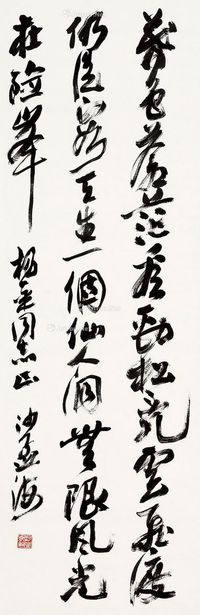 暮色苍茫看劲松乱云飞渡
仍从容天生一个仙人洞无限风光
在险峰 杨奎同志正 沙孟海